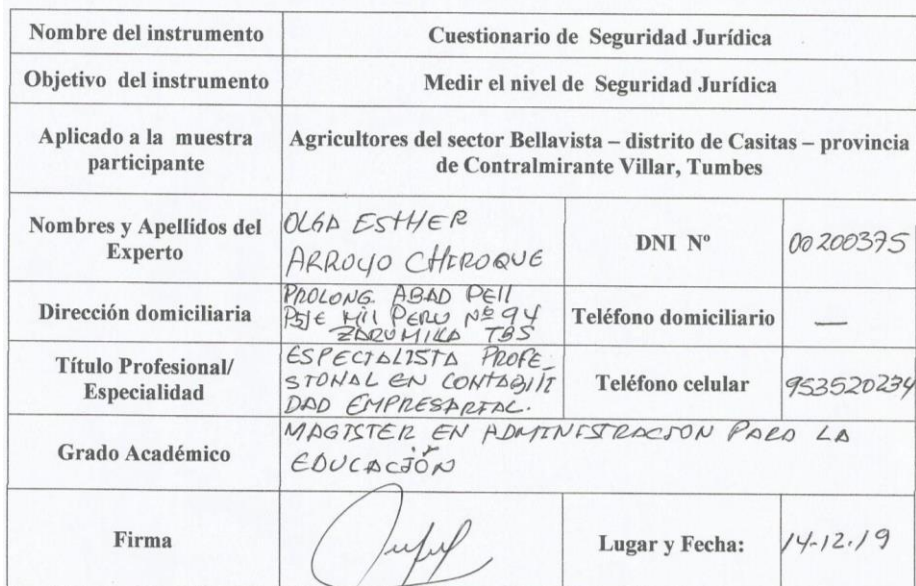 Nombre del instrumento
Cuestionario de Seguridad Jurídica
Objetivo del instrumento
Medir el nivel de Seguridad Jurídica
Aplicado a la muestra
participante
Agricultores del sector Bellavista – distrito de Casitas – provincia
de Contralmirante Villar, Tumbes
Nombres y Apellidos del
Experto
OLGA ESTHER
ARROYO CHIROQUE
DNI Nº
00200375
Dirección domiciliaria
PROLONG. ABAD PEll
PSJE Mil PERU Nº 94
ZARUMILLA TBS
Teléfono domiciliario
—
Título Profesional/
Especialidad
ESPECIALISTA PROFE_
SIONAL EN CONTABILI
DAD EMPRESARIAL.
Teléfono celular
953520234
Grado Académico
MAGISTER EN ADMINISTRACION PARA LA
EDUCACIÓN
Firma
Lugar y Fecha:
14-12.19